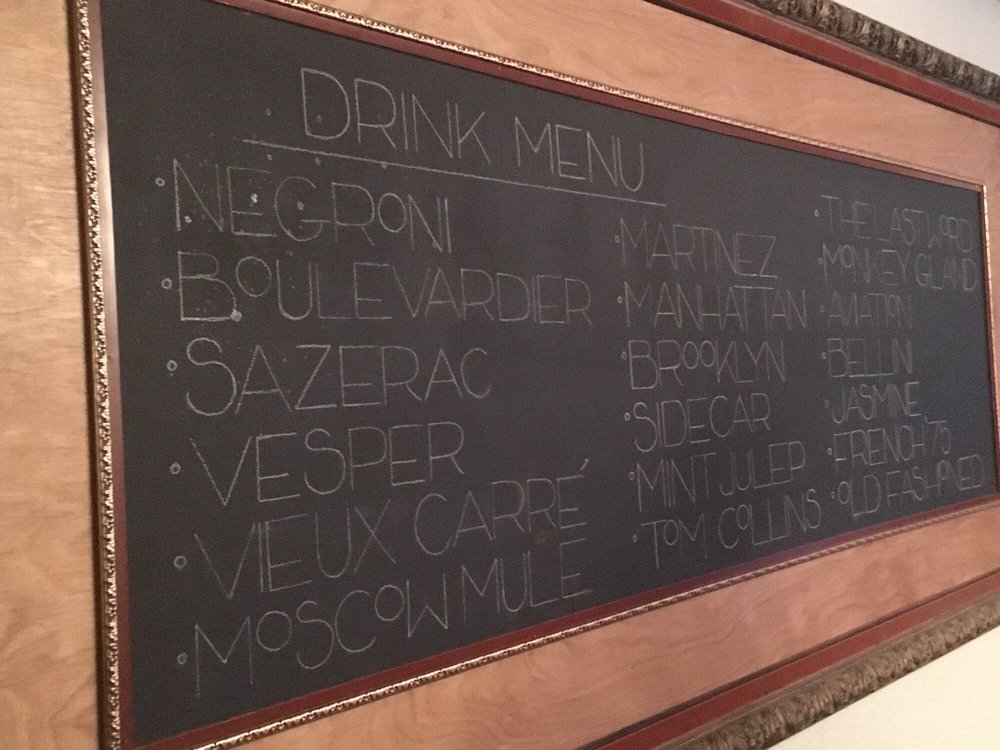 DRINK MENU
NEGRONI
BOULEVARDIER
SAZERAC
VESPER
VIEUX CARRÉ
MOSCOW MULE
MARTINEZ
MANHATTAN
BROOKLYN
SIDECAR
MINT JULEP
TOM COLLINS
THE LAST WORD
MONKEY GLAND
AVIATION
BELLINI
JASMINE
FRENCH '75
OLD FASHIONED